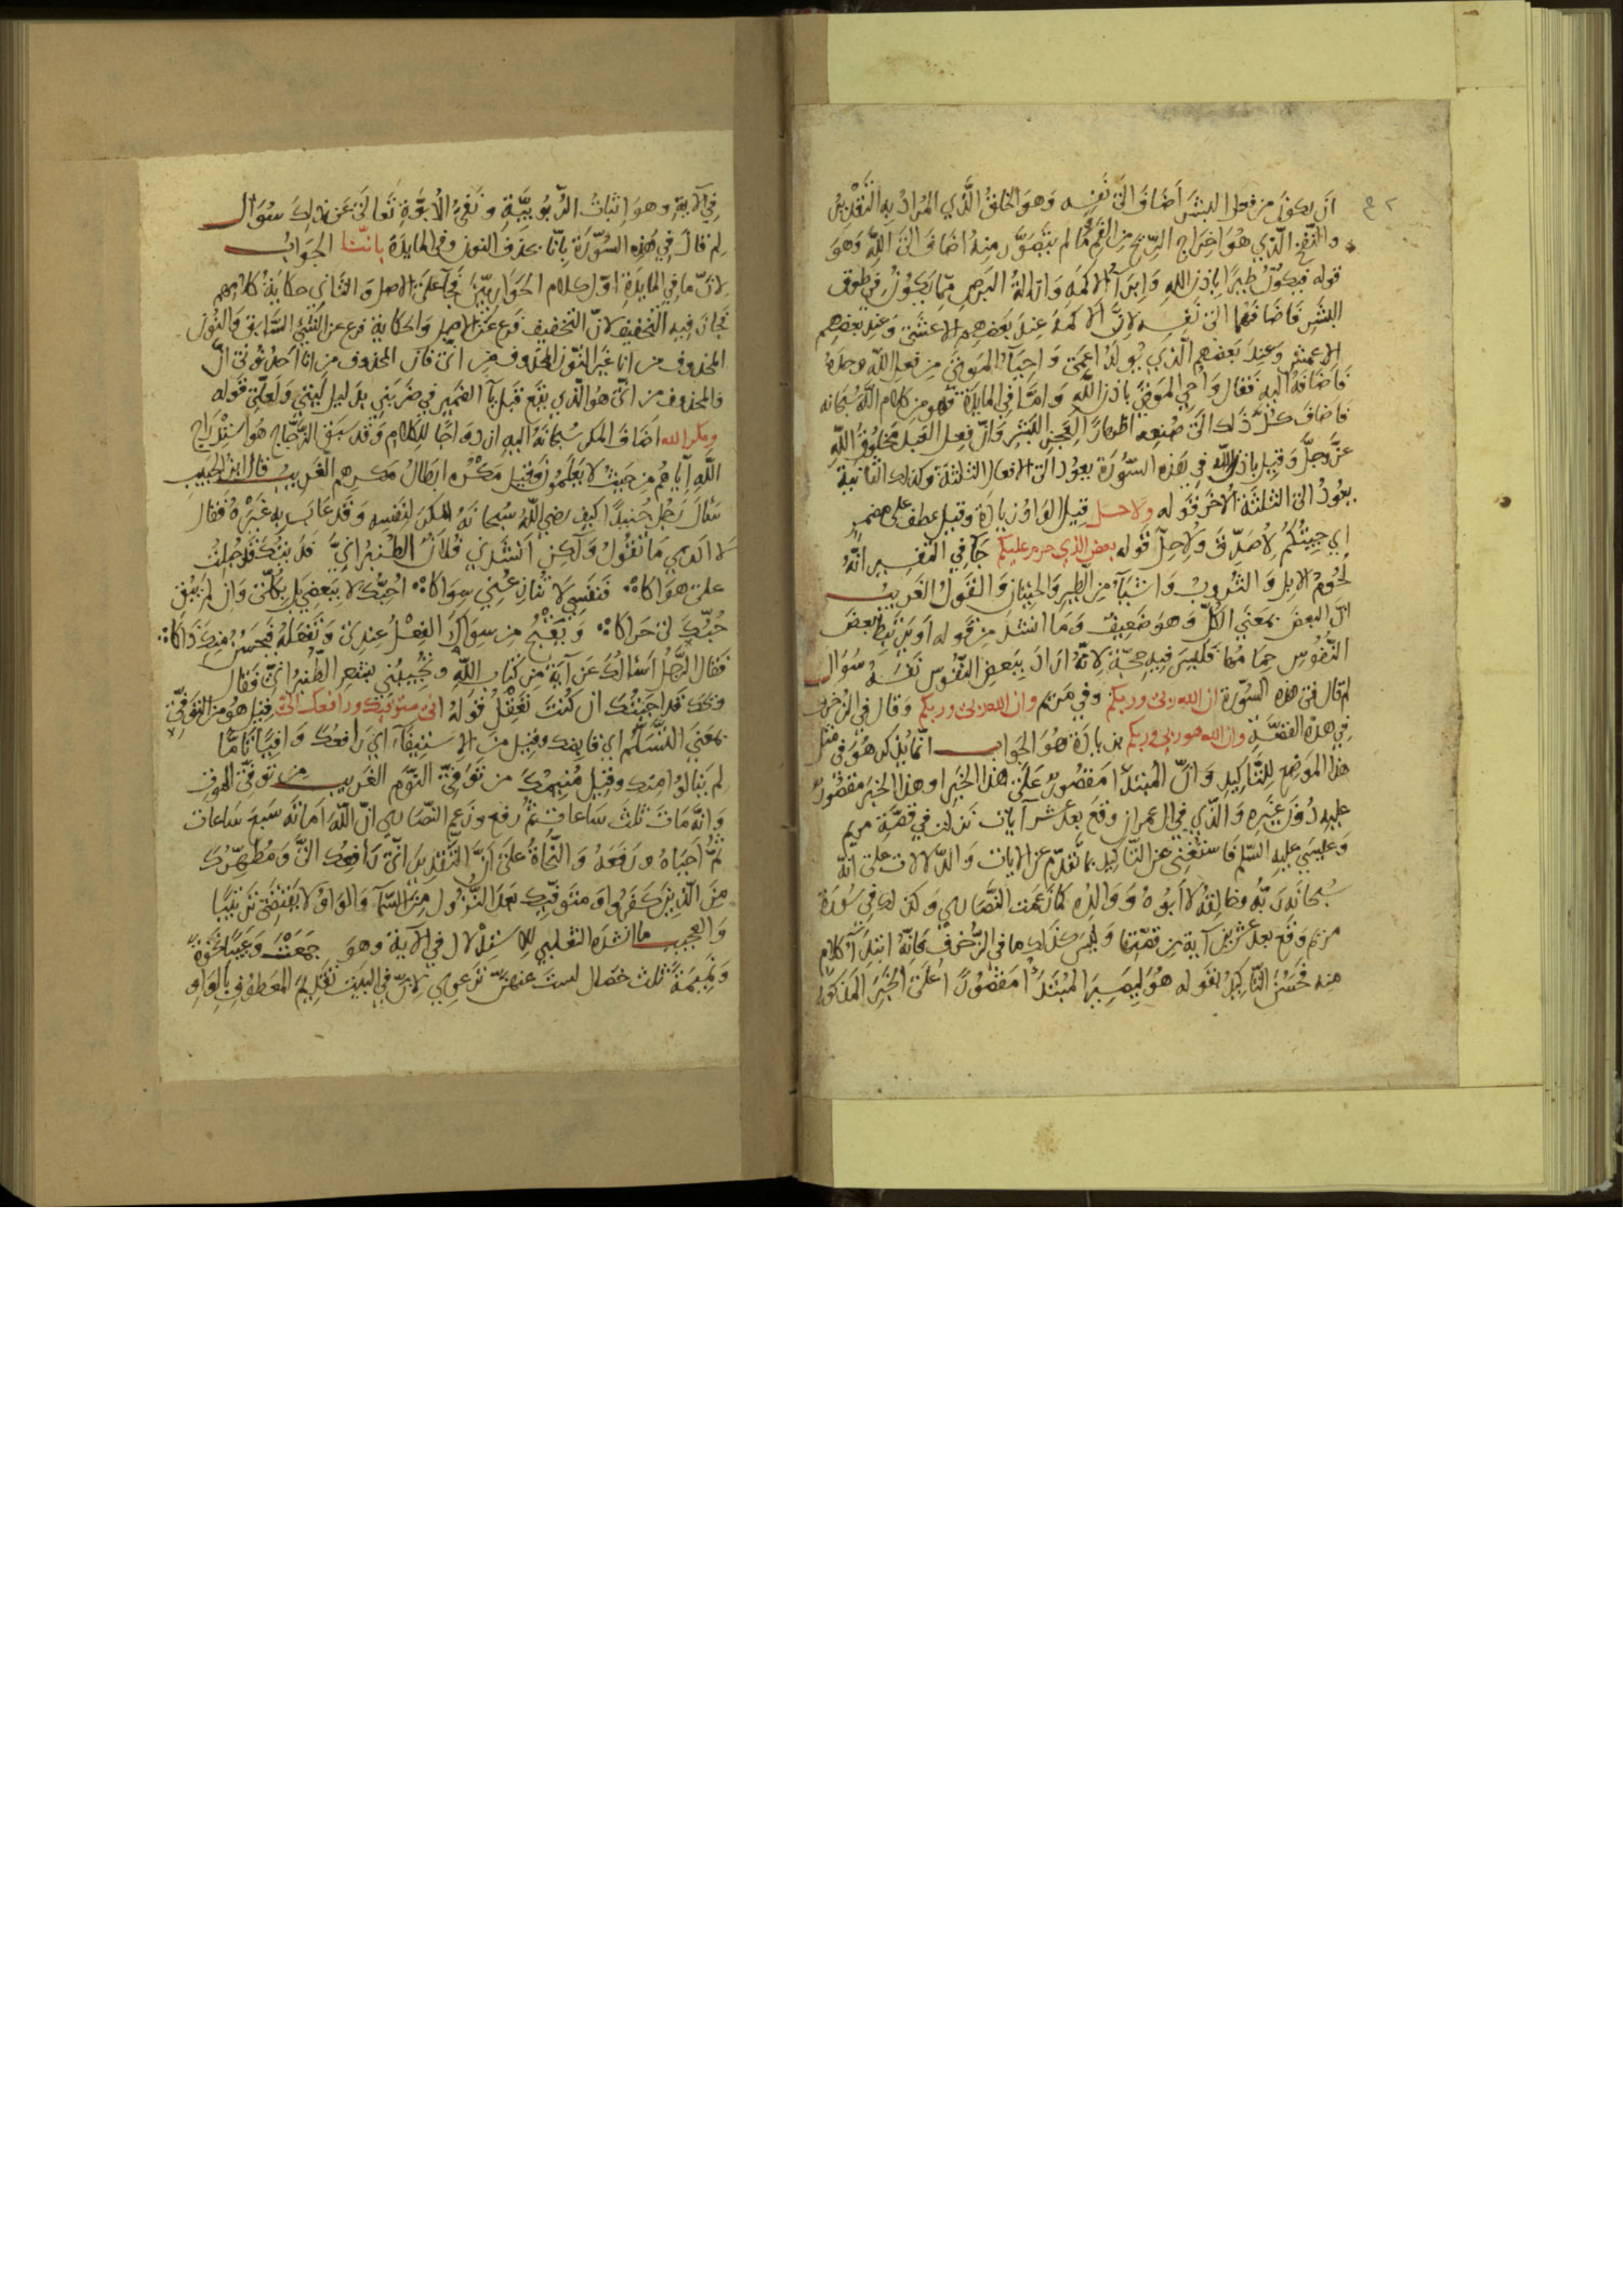 ان يكون من فعل البشر اضاف الى نفسه وهو الخلق الذي المراد به التقدير
والنفخ الذي هو اخراج الريح من الفم وما لم يتصور منه اضاف الى الله وهو
قوله فيكون طيرا باذن الله وابراء الاكمه وازالة البرص مما يكون في طوق
البشر فاضافهما الى نفسه لان الاكمه عند بعضهم الاعشى وعند بعضهم
الاعمش وعند بعضهم الذي يولد اعمى واحياء الموتى من فعل الله وحده
فاضافه اليه فقال واحيي الموتى باذن الله واما في المايدة فهو من كلام الله سبحانه
فاضاف كل ذلك الى صنعه اظهارا لعجز البشر وان فعل العبد مخلوق الله
عز وجل وقيل باذن الله في هذه السورة يعود الى الافعال الثلثة وكذلك الثانية
يعود الى الثلثة الاخر قوله ولاحل قيل الواو زيادة وقيل عطف على مضمر
اي جيتكم لاصدق ولاحل قوله بعض الذي حرم عليكم جا في التفسير انه
لحوم الابل والثروب واشياء من الطير والحيتان والقول الغريب
ان البعض بمعنى الكل وهو ضعيف وما انشد من قوله او يرتبط بعض
النفوس حمامها فليس فيه حجة لانه اراد ببعض النفوس نفسه سوال
لم قال في هذه السورة ان الله ربي وربكم وفي مريم وان الله ربي وربكم وقال في الزخرف
في هذه القصة وان الله هو ربي وربكم بزيادة هو الجواب انما يذكر هو في مثل
هذا الموضع للتاكيد وان المبتدأ مقصور على هذا الخبر او هذا الخبر مقصور
عليه دون غيره والذي في ال عمران وقع بعد عشر ايات نزلت في قصة مريم
وعيسى عليه السلم فاستغنى عن التاكيد بما تقدم من الايات والدلالات على انه
سبحانه ربه وخالقه لا ابوه ووالده كما زعمت النصارى وكذلك في سورة
مريم وقع بعد عشرين آية من قصتها وليس كذلك ما في الزخرف فانه ابتداء كلام
منه فحسن التاكيد بقوله هو ليصير المبتدأ مقصورا على الخبر المذكور
في الاية وهو اثبات الربوبية ونفي الابوة تعالى عن ذلك سوال
لم قال في هذه السورة بانا بحذف النون وفي المايدة باننا الجواب
لان ما في المايدة اول كلام الحواريين فجا على الاصل والثاني حكاية كلامهم
فجاز فيه التخفيف لان التخفيف فرع عن الاصل والحكاية فرع عن الشيء السابق والنون
المحذوف من انا غير النون المحذوف من اني فان المحذوف من انا احد نوني ان
والمحذوف من اني هو الذي يقع قبل ياء الضمير في ضربني بدليل ليتني ولعلي قوله
ومكر الله اضاف المكر سبحانه اليه ازدواجا للكلام وقد سبق الزجاج هو استدراج
الله اياهم من حيث لا يعلمون وقيل مكره ابطال مكرهم الغريب قال ابن الحبيب
سال رجل جنيدا كيف رضي الله سبحانه المكر لنفسه وقد عاب به غيره فقال
لا ادري ما تقول ولكن انشدني فلان الطنبراني فديتك قد جبلت
على هواكا فنفسي لا تنازعني سواكا احبك لا ببعضي بل بكلي وان لم يبق
حبك لي حراكا ويقبح من سواك الفعل عندي وتفعله فيحسن منك ذاكا
فقال الرجل اسالك عن آية من كتاب الله وتجيبني بشعر الطنبراني فقال
ويحك قد اجبتك ان كنت تعقل قوله اني متوفيك ورافعك الي قيل هو من التوفي
بمعنى التسلم اي قابضك وقيل من الاستيفاء اي رافعك وافيا تاما
لم ينالوا منك وقيل منيمك من توفي النوم الغريب من توفي الموت
وانه مات ثلث ساعات ثم رفع وزعم النصارى ان الله اماته سبع ساعات
ثم احياه ورفعه والنحاة على ان التقدير اني رافعك الي ومطهرك
من الذين كفروا ومتوفيك بعد النزول من السماء والواو لا يقتضي ترتيبا
والعجيب ما انشده الثعلبي للاستدلال في الاية وهو جمعت وعيبا نخوة
ونميمة ثلث خصال لست عنهن ترعوي لان في البيت تقديم المعطوف بالواو